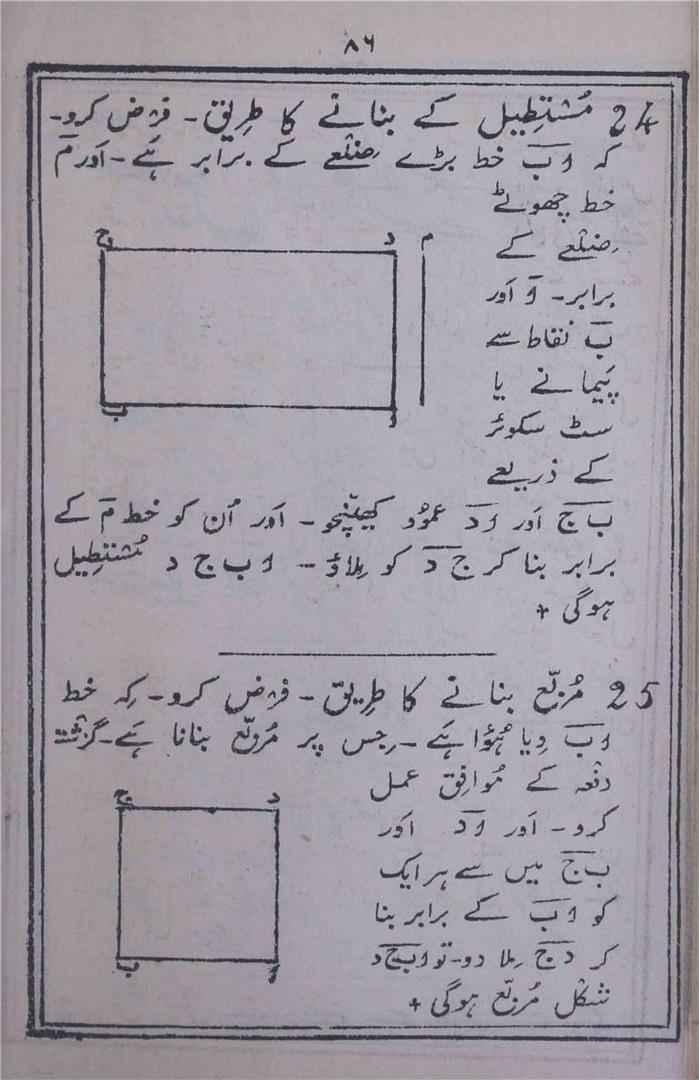 ۸۶
24 مُستطِیل کے بنانے کا طرِیق - فرض کرو-
کہ وَب خط بڑے ضِلعے کے برابر ہَے - اَور مَ
خط چھوٹے
ضِلعے کے
برابر - وَ اَور
بَ نقاط سے
پَیمانے یا
سٹ سکوئر
کے ذریعے
ب ج اَور و د عمُود کھینچو - اَور اُن کو خط مَ کے
برابر بنا کر ج د کو مِلاؤ - و ب ج د مُستطِیل
ہوگی +
م
د
ج
و
ب
25 مُربّع بنانے کا طرِیق - فرض کرو - کہ خط
وَب دِیا ہُؤا ہَے - جِس پر مُربّع بنانا ہَے - گزشتہ
دفعہ کے مُوافِق عمل
کرو - اَور و د اَور
ب ج میں سے ہر ایک
کو و ب کے برابر بنا
کر د ج مِلا دو - تو و ب ج د
شکل مُربّع ہوگی +
د
ج
و
ب